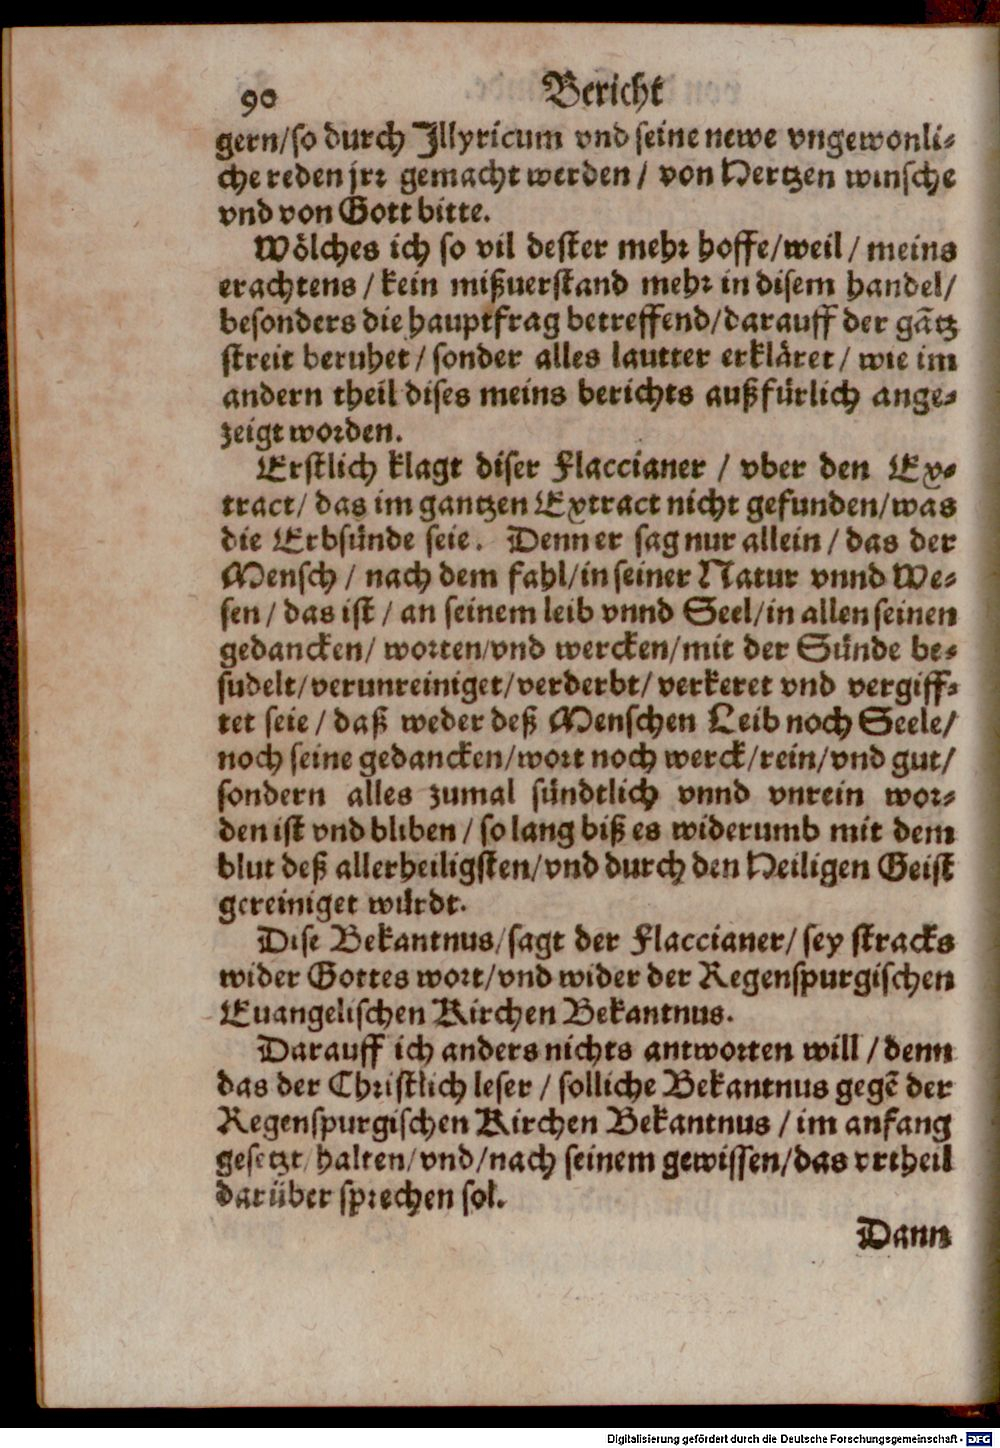 90 Bericht
gern/so durch Jllyricum vnd seine newe vngewonli-
che reden jrr gemacht werden / von Hertzen winsche
vnd von Gott bitte.
Wölches ich so vil dester mehr hoffe/weil / meins
erachtens / kein mißuerstand mehr in disem handel/
besonders die hauptfrag betreffend/darauff der gãtz
streit beruhet / sonder alles lautter erkläret / wie im
andern theil dises meins berichts außfürlich ange-
zeigt worden.
Erstlich klagt diser Flaccianer / vber den Ex-
tract/ das im gantzen Extract nicht gefunden/was
die Erbsünde seie. Denn er sag nur allein / das der
Mensch / nach dem fahl/in seiner Natur vnnd We-
sen / das ist / an seinem leib vnnd Seel/in allen seinen
gedancken/ worten/vnd wercken/mit der Sünde be-
sudelt/verunreiniget/verderbt/ verkeret vnd vergiff-
tet seie / daß weder deß Menschen Leib noch Seele/
noch seine gedancken/wort noch werck/rein/vnd gut/
sondern alles zumal sündtlich vnnd vnrein wor-
den ist vnd bliben / so lang biß es widerumb mit dem
blut deß allerheiligsten/vnd durch den Heiligen Geist
gereiniget würdt.
Dise Bekantnus/sagt der Flaccianer/ sey stracks
wider Gottes wort/vnd wider der Regenspurgischen
Euangelischen Kirchen Bekantnus.
Darauff ich anders nichts antworten will / denn
das der Christlich leser / solliche Bekantnus gegẽ der
Regenspurgischen Kirchen Bekantnus / im anfang
gesetzt/ halten/vnd/nach seinem gewissen/das vrtheil
darüber sprechen sol.
Dann
Digitalisierung gefördert durch die Deutsche Forschungsgemeinschaft - DFG